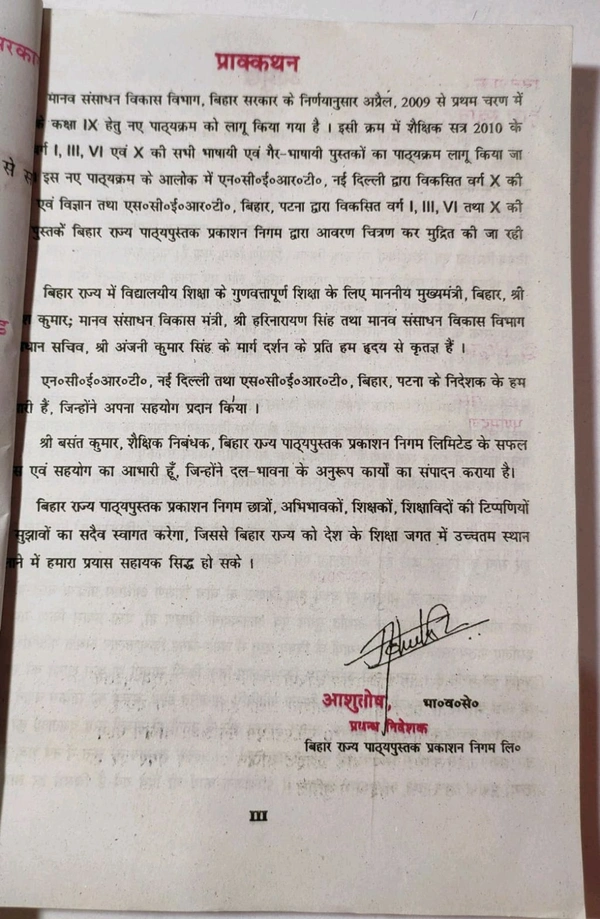 प्राक्कथन
मानव संसाधन विकास विभाग, बिहार सरकार के निर्णयानुसार अप्रैल, 2009 से प्रथम चरण में
कक्षा IX हेतु नए पाठ्यक्रम को लागू किया गया है । इसी क्रम में शैक्षिक सत्र 2010 के
I, III, VI एवं X की सभी भाषायी एवं गैर-भाषायी पुस्तकों का पाठ्यक्रम लागू किया जा
इस नए पाठ्यक्रम के आलोक में एन०सी०ई०आर०टी०, नई दिल्ली द्वारा विकसित वर्ग X की
एवं विज्ञान तथा एस०सी०ई०आर०टी०, बिहार, पटना द्वारा विकसित वर्ग I, III, VI तथा X की
पुस्तकें बिहार राज्य पाठ्यपुस्तक प्रकाशन निगम द्वारा आवरण चित्रण कर मुद्रित की जा रही
बिहार राज्य में विद्यालयीय शिक्षा के गुणवत्तापूर्ण शिक्षा के लिए माननीय मुख्यमंत्री, बिहार, श्री
कुमार; मानव संसाधन विकास मंत्री, श्री हरिनारायण सिंह तथा मानव संसाधन विकास विभाग
सचिव, श्री अंजनी कुमार सिंह के मार्ग दर्शन के प्रति हम हृदय से कृतज्ञ हैं ।
एन०सी०ई०आर०टी०, नई दिल्ली तथा एस०सी०ई०आर०टी०, बिहार, पटना के निदेशक के हम
हैं, जिन्होंने अपना सहयोग प्रदान किया ।
श्री बसंत कुमार, शैक्षिक निबंधक, बिहार राज्य पाठ्यपुस्तक प्रकाशन निगम लिमिटेड के सफल
एवं सहयोग का आभारी हूँ, जिन्होंने दल-भावना के अनुरूप कार्यों का संपादन कराया है।
बिहार राज्य पाठ्यपुस्तक प्रकाशन निगम छात्रों, अभिभावकों, शिक्षकों, शिक्षाविदों की टिप्पणियों
सुझावों का सदैव स्वागत करेगा, जिससे बिहार राज्य को देश के शिक्षा जगत में उच्चतम स्थान
में हमारा प्रयास सहायक सिद्ध हो सके ।
आशुतोष, भा०व०से०
प्रबन्ध निदेशक
बिहार राज्य पाठ्यपुस्तक प्रकाशन निगम लि०
III